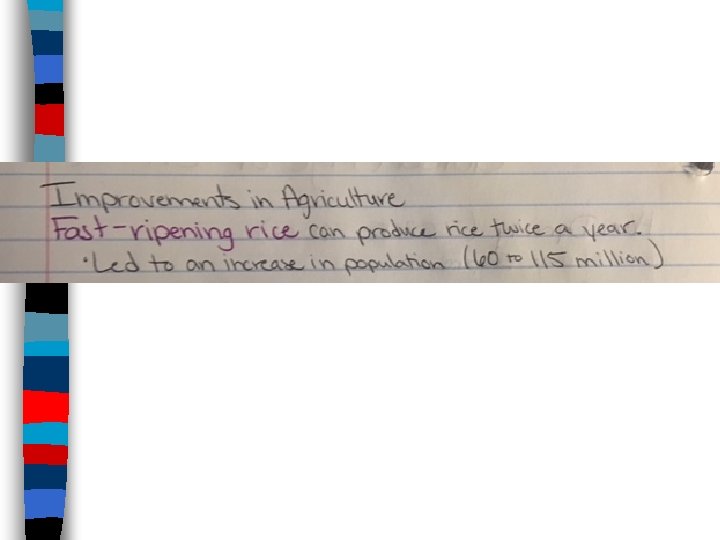 Improvements in Agriculture
Fast-ripening rice can produce rice twice a year.
•Led to an increase in population (60 to 115 million)